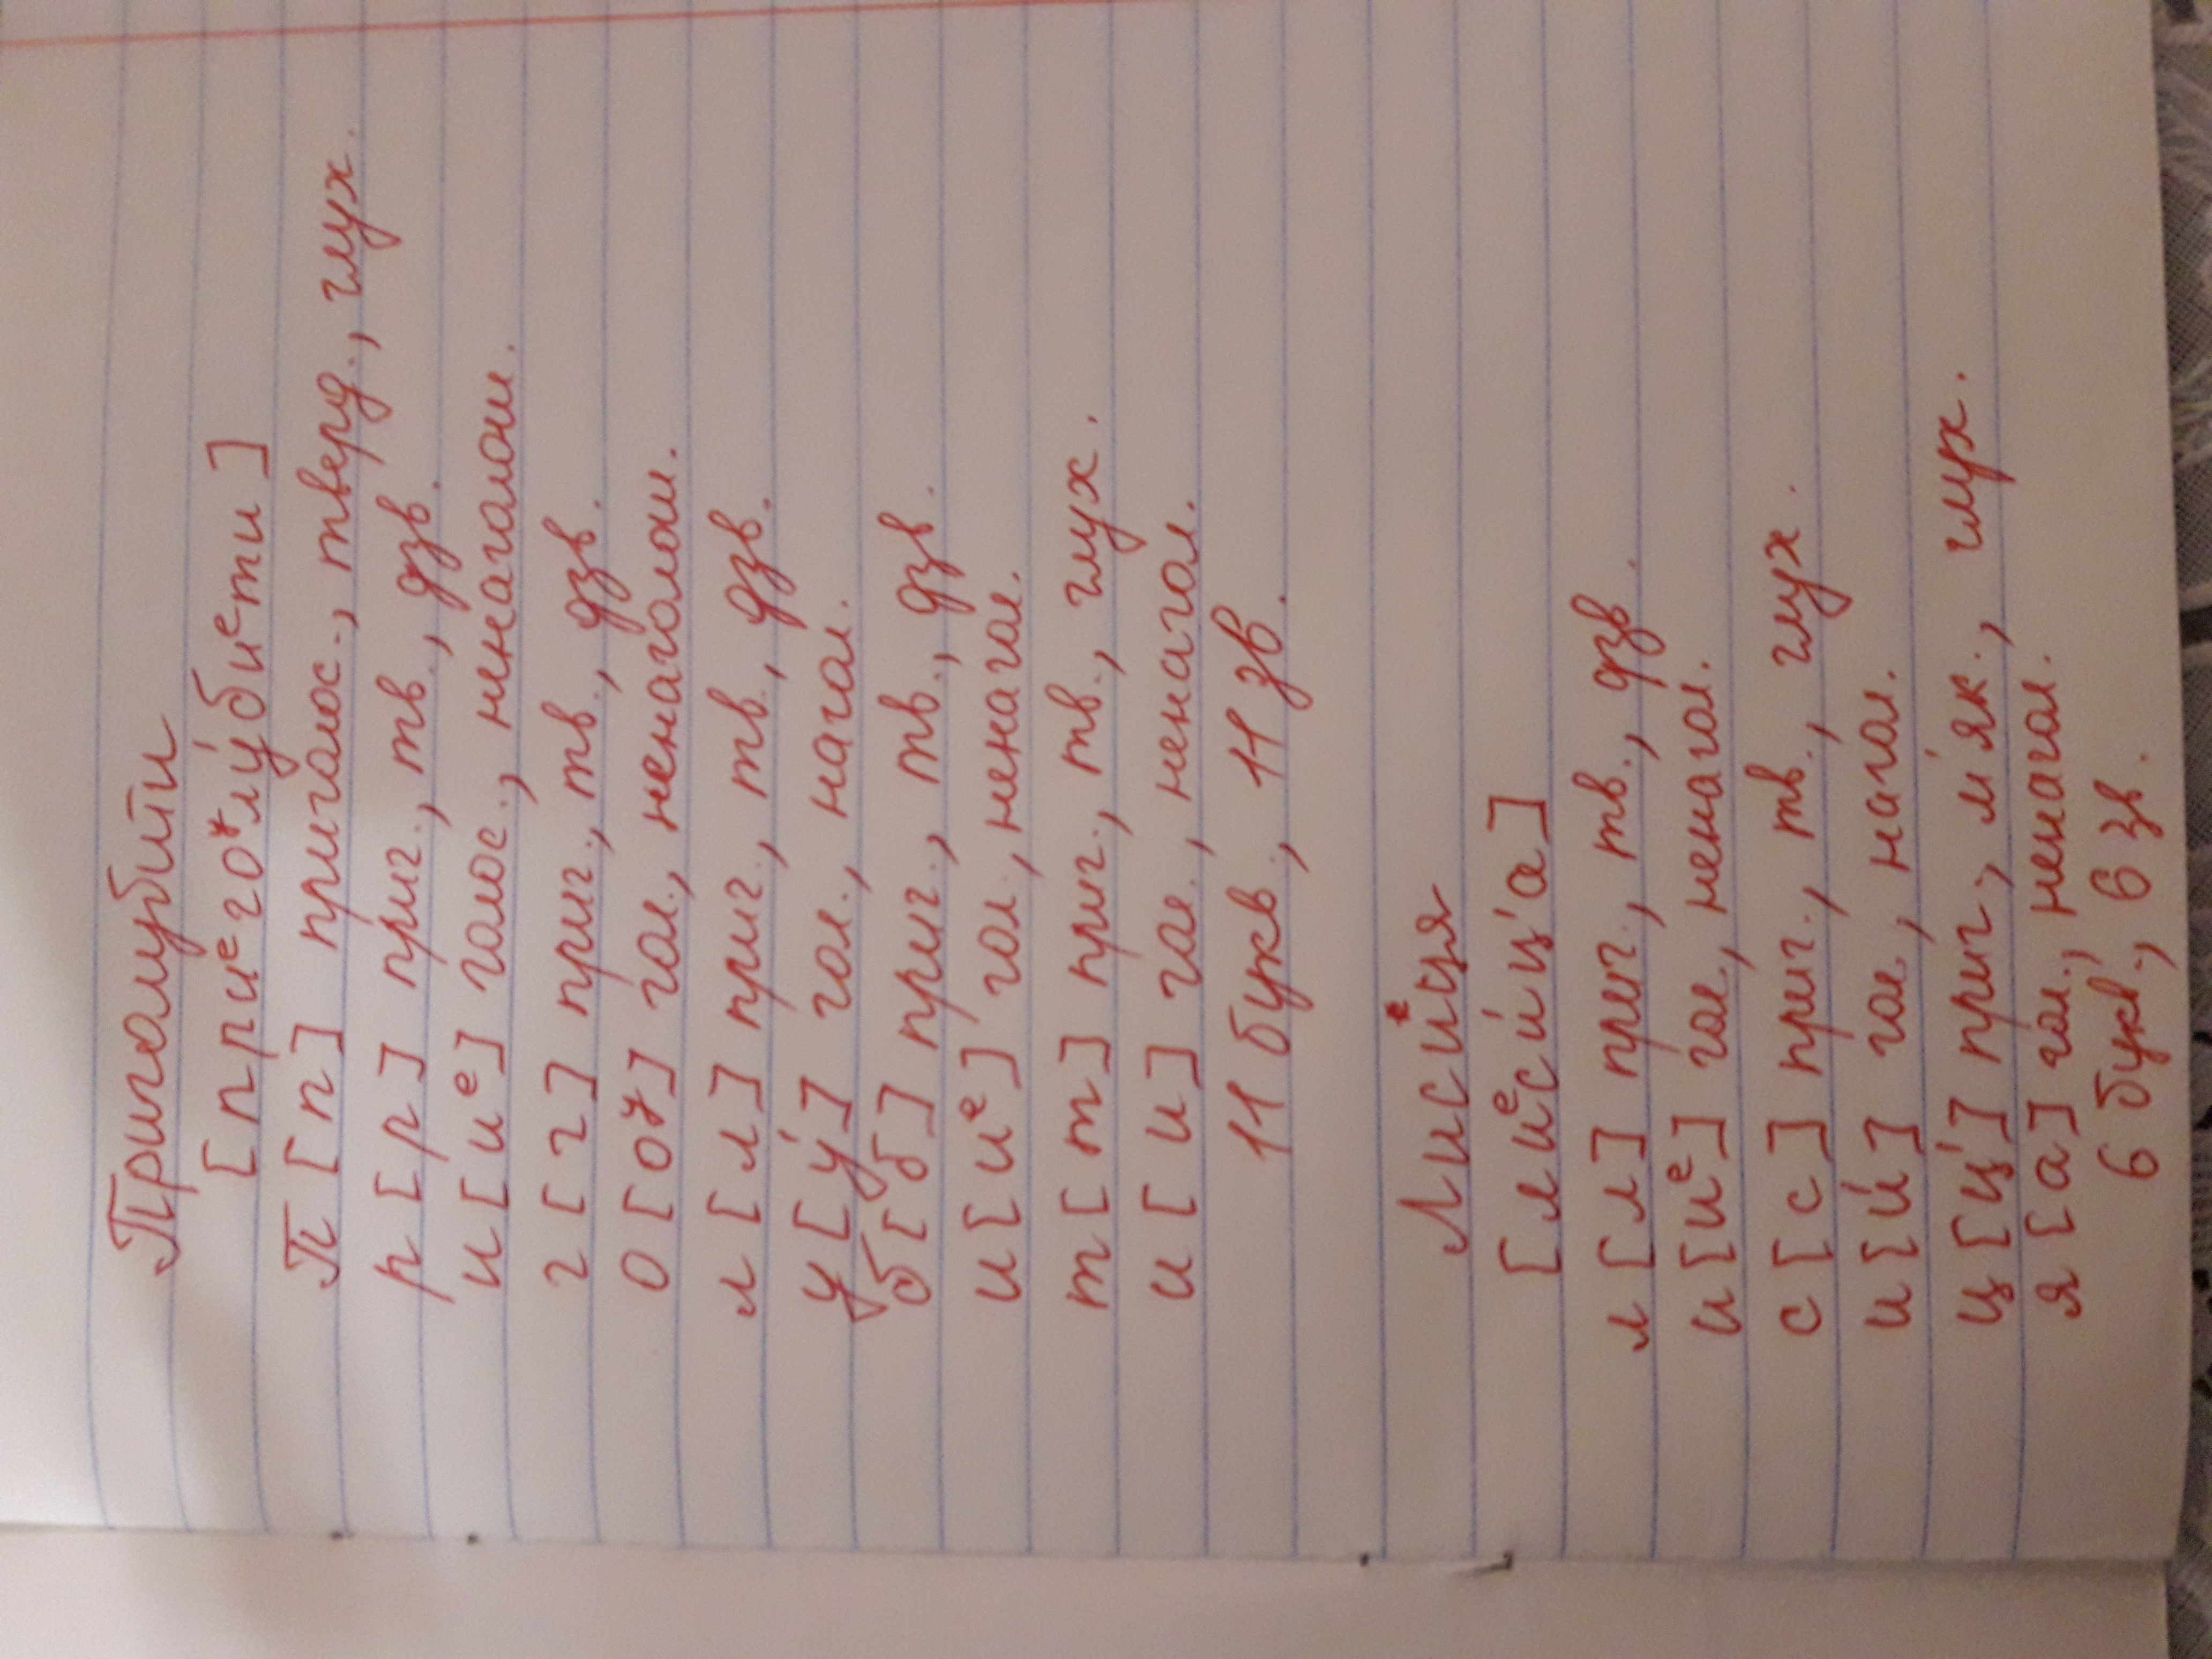 Приголубити
[приᵉгоʸлу́биᵉти]
П [п] приголос., тверд., глух.
р [р] приг., тв., дзв.
и [иᵉ] голос., ненаголош.
г [г] приг., тв., дзв.
о [оʸ] гол., ненаголош.
л [л] приг., тв., дзв.
у [у́] гол., нагол.
б [б] приг., тв., дзв.
и [иᵉ] гол., ненагол.
т [т] приг., тв., глух.
и [и] гол., ненагол.
11 букв., 11 зв.
Лиси́ця
[лиᵉси́ц'а]
л [л] приг., тв., дзв.
и [иᵉ] гол., ненагол.
с [с] приг., тв., глух.
и [и́] гол., нагол.
ц [ц'] приг., м'як., глух.
я [а] гол., ненагол.
6 букв., 6 зв.